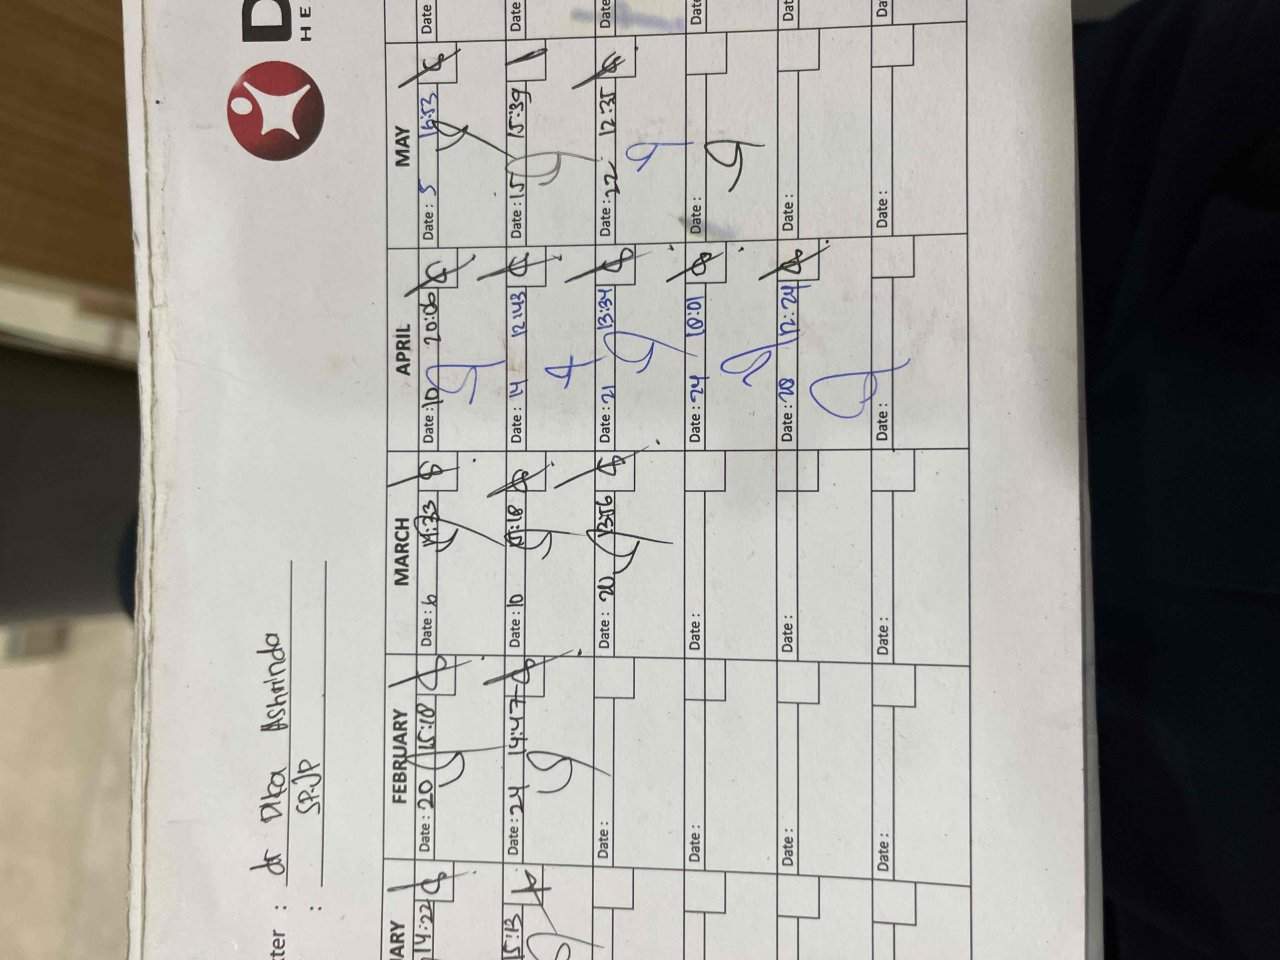 D
HE
ter : dr Dika Ashrinda
: SP.JP
ARY
14:22
15:13
FEBRUARY
Date : 20 15:18
Date : 24 14:47
Date :
Date :
Date :
Date :
MARCH
Date : 6 17:33
Date : 10 17:18
Date : 20 13:56
Date :
Date :
Date :
APRIL
Date : 10 20:06
Date : 14 12:43
Date : 21 13:34
Date : 24 10:01
Date : 28 12:24
Date :
MAY
Date : 5 16:53
Date : 15 15:39
Date : 22 12:35
Date :
Date :
Date :
Date
Date
Date
Dat
Dat
Da